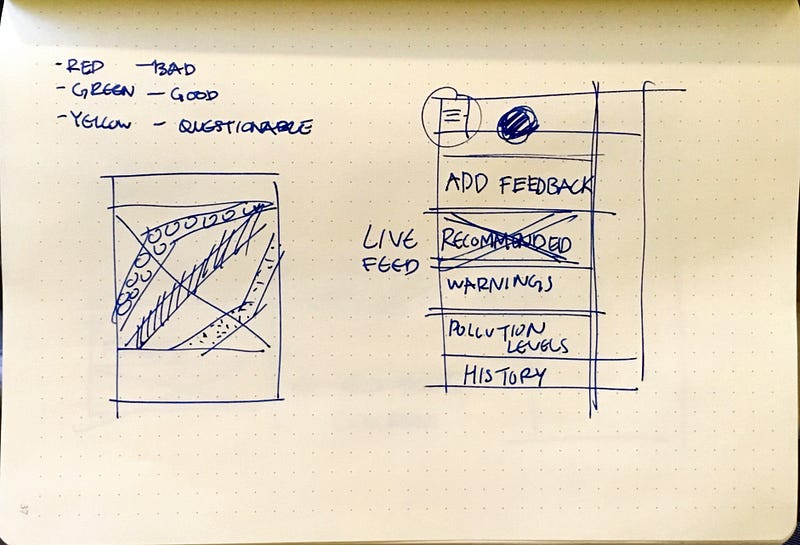 - RED - BAD
- GREEN - GOOD
- YELLOW - QUESTIONABLE
ADD FEEDBACK
LIVE
FEED
RECOMMENDED
WARNINGS
POLLUTION
LEVELS
HISTORY
37